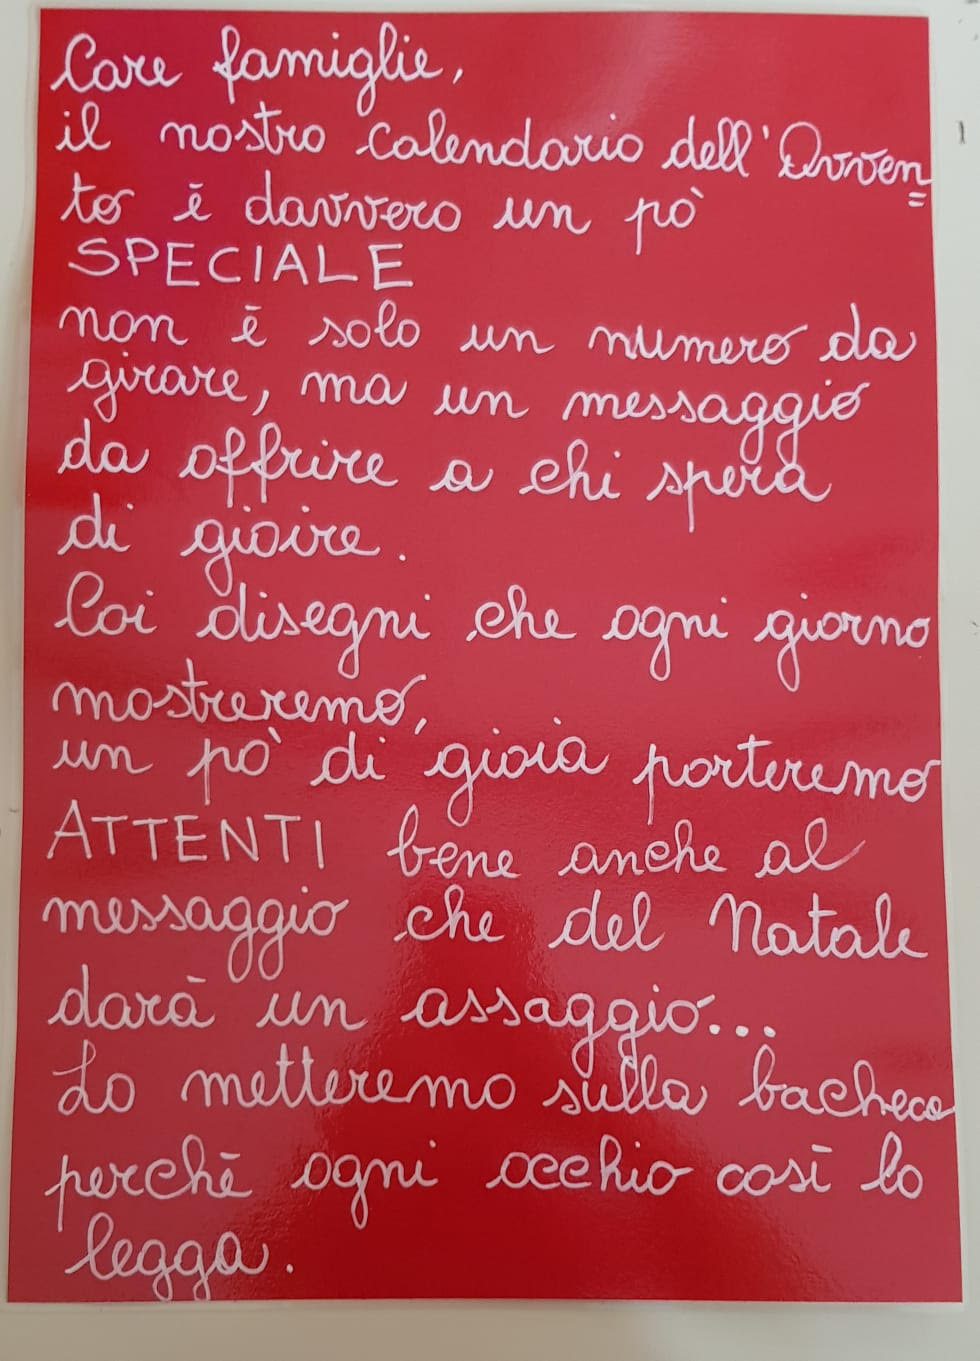 Care famiglie,
il nostro calendario dell'Avven=
to è davvero un pò
SPECIALE
non è solo un numero da
girare, ma un messaggio
da offrire a chi spera
di gioire.
Coi disegni che ogni giorno
mostreremo,
un pò di gioia porteremo
ATTENTI bene anche al
messaggio che del Natale
darà un assaggio...
Lo metteremo sulla bacheca
perchè ogni occhio così lo
legga.